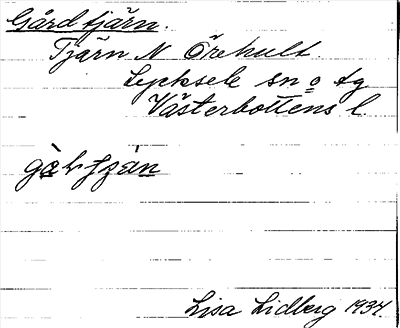 Gårdtjärn.
Tjärn N Örehult.
Lycksele sn o tg
Västerbottens l.
Lisa Lidberg 1934.